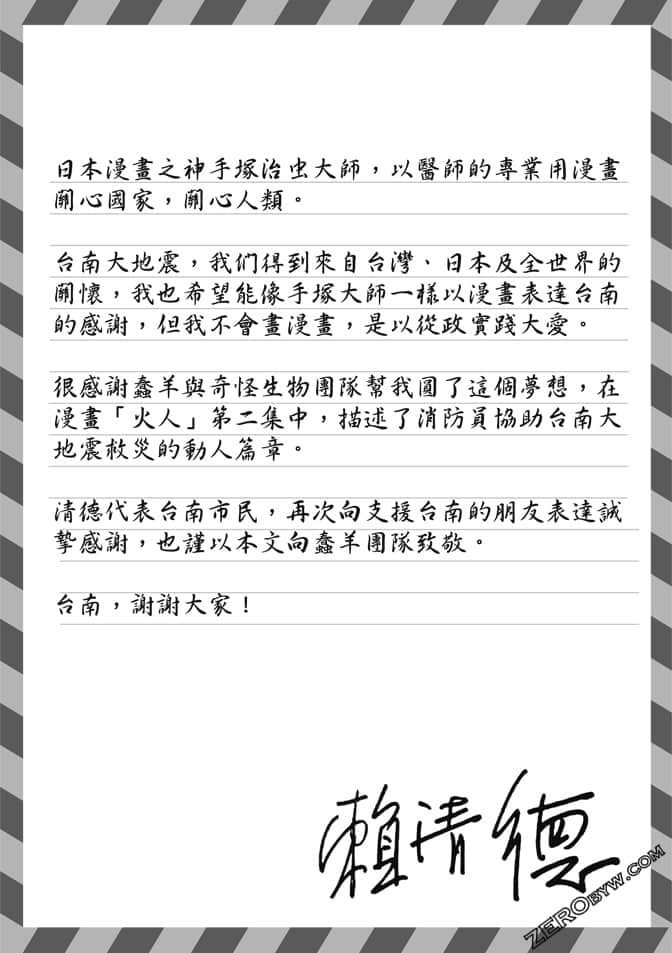 日本漫畫之神手塚治虫大師，以醫師的專業用漫畫
關心國家，關心人類。
台南大地震，我们得到來自台灣、日本及全世界的
關懷，我也希望能像手塚大師一樣以漫畫表達台南
的感謝，但我不會畫漫畫，是以從政實踐大愛。
很感謝蠢羊與奇怪生物團隊幫我圓了這個夢想，在
漫畫「火人」第二集中，描述了消防員協助台南大
地震救災的動人篇章。
清德代表台南市民，再次向支援台南的朋友表達誠
摯感謝，也謹以本文向蠢羊團隊致敬。
台南，謝謝大家！
賴清德
ZEROBYW.COM